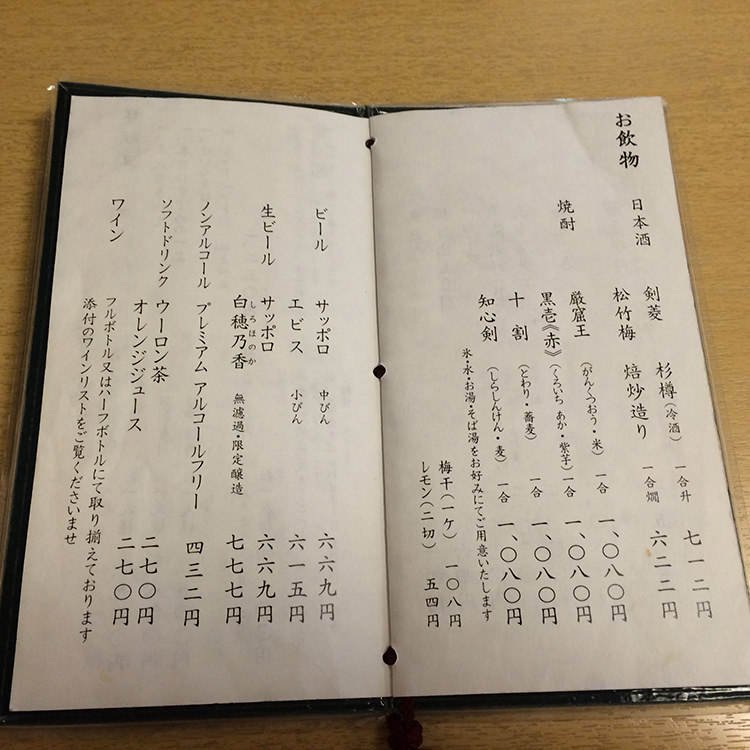 お飲物
日本酒
剣菱 杉樽(冷酒) 一合升 七一二円
松竹梅 焙炒造り 一合燗 六二二円
焼酎
厳窟王 (がんくつおう・米) 一合 一、〇八〇円
黒壱《赤》 (くろいち あか・紫芋) 一合 一、〇八〇円
十割 (とわり・蕎麦) 一合 一、〇八〇円
知心剣 (しらしんけん・麦) 一合 一、〇八〇円
氷・水・お湯・そば湯をお好みにてご用意いたします
梅干(一ケ) 一〇八円
レモン(二切) 五四円
ビール サッポロ 中びん 六六九円
エビス 小びん 六一五円
生ビール サッポロ 六六九円
白穂乃香 しろほのか 無濾過・限定醸造 七七七円
ノンアルコール プレミアム アルコールフリー 四三二円
ソフトドリンク ウーロン茶 二七〇円
オレンジジュース 二七〇円
ワイン フルボトル又はハーフボトルにて取り揃えております
添付のワインリストをご覧くださいませ